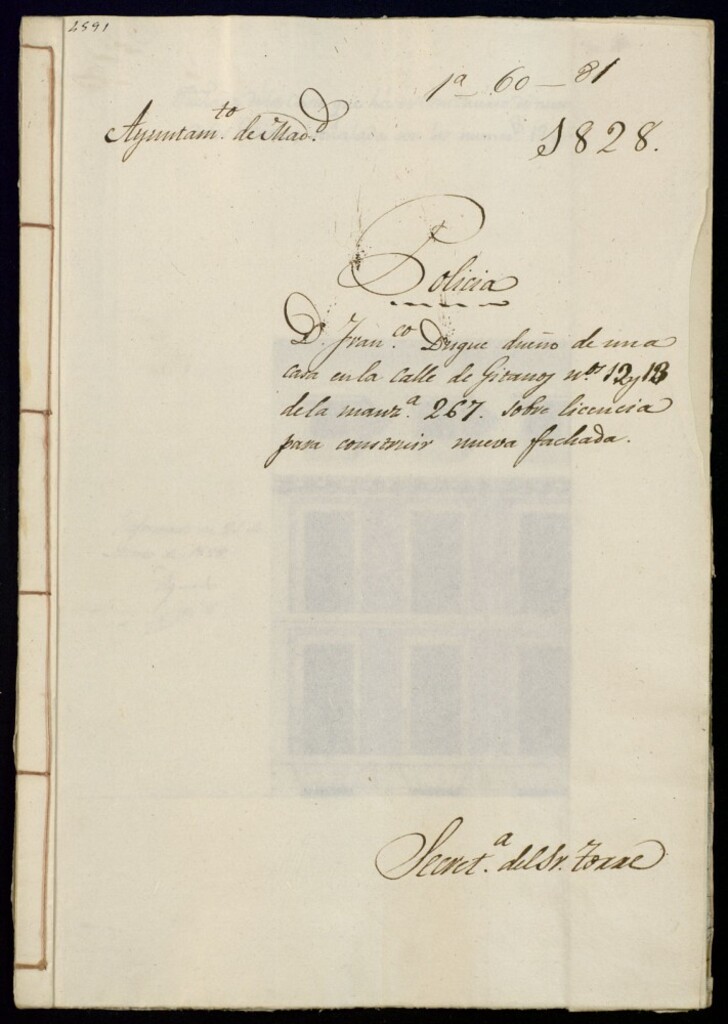 1591
1ª 60-81
Ayuntam.to de Mad.d
1828.
Policia
D. Fran.co Duque dueño de una
casa en la Calle de Gitanos n.os 12 y 13
de la manz.a 267. sobre licencia
para construir nueva fachada.
Secret.a del Sr. Torre